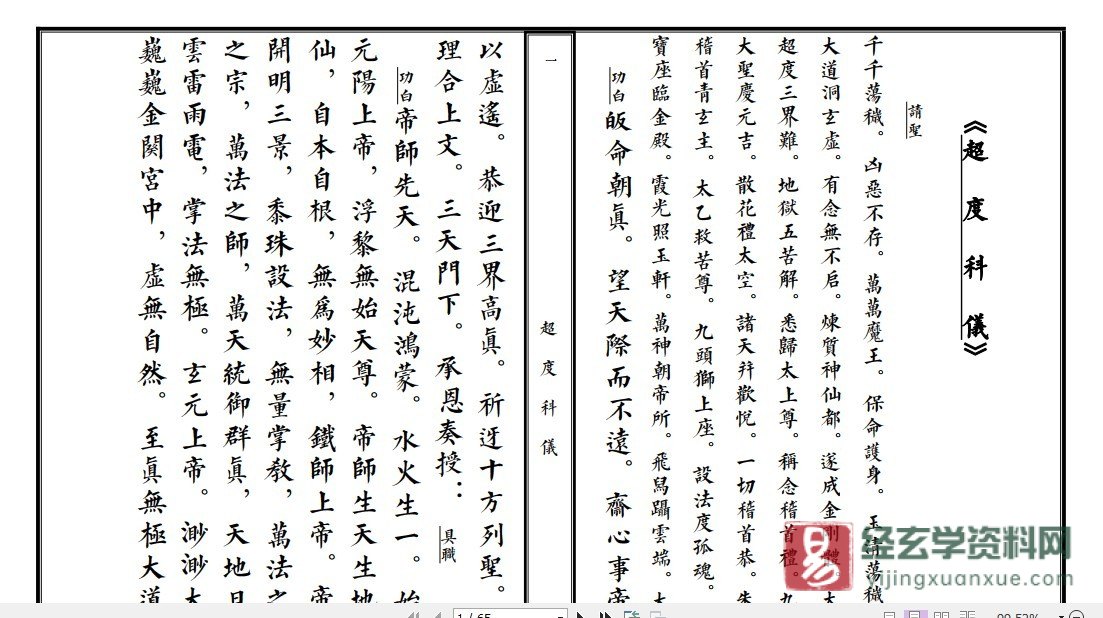 《超度科儀》
請聖
千千蕩穢。凶惡不存。萬萬魔王。保命護身。玉清蕩穢
大道洞玄虛。有念無不启。煉質神仙都。遂成金剛體。大
超度三界難。地獄五苦解。悉歸太上尊。稱念稽首禮。九
大聖慶元吉。散花禮太空。諸天并歡悅。一切稽首恭。朱
稽首青玄主。太乙救苦尊。九頭獅上座。設法度孤魂。
寶座臨金殿。霞光照玉軒。萬神朝帝所。飛舄躡雲端。大
功白
皈命朝眞。望天際而不遠。齋心事帝
一
超度科儀
以虛遙。恭迎三界高眞。祈迓十方列聖。
理合上文。三天門下。承恩奏授：具職
功白
帝師先天。混沌鴻蒙。水火生一。始
元陽上帝，浮黎無始天尊。帝師生天生地
仙，自本自根，無爲妙相，鐵師上帝。帝
開明三景，黍珠設法，無量掌教，萬法之
之宗，萬法之師，萬天統御群眞，天地日
雲雷雨電，掌法無極。玄元上帝。渺渺大
巍巍金闕宮中，虛無自然。至眞無極大道
经玄学资料网
yijingxuanxue.com
易
1/65